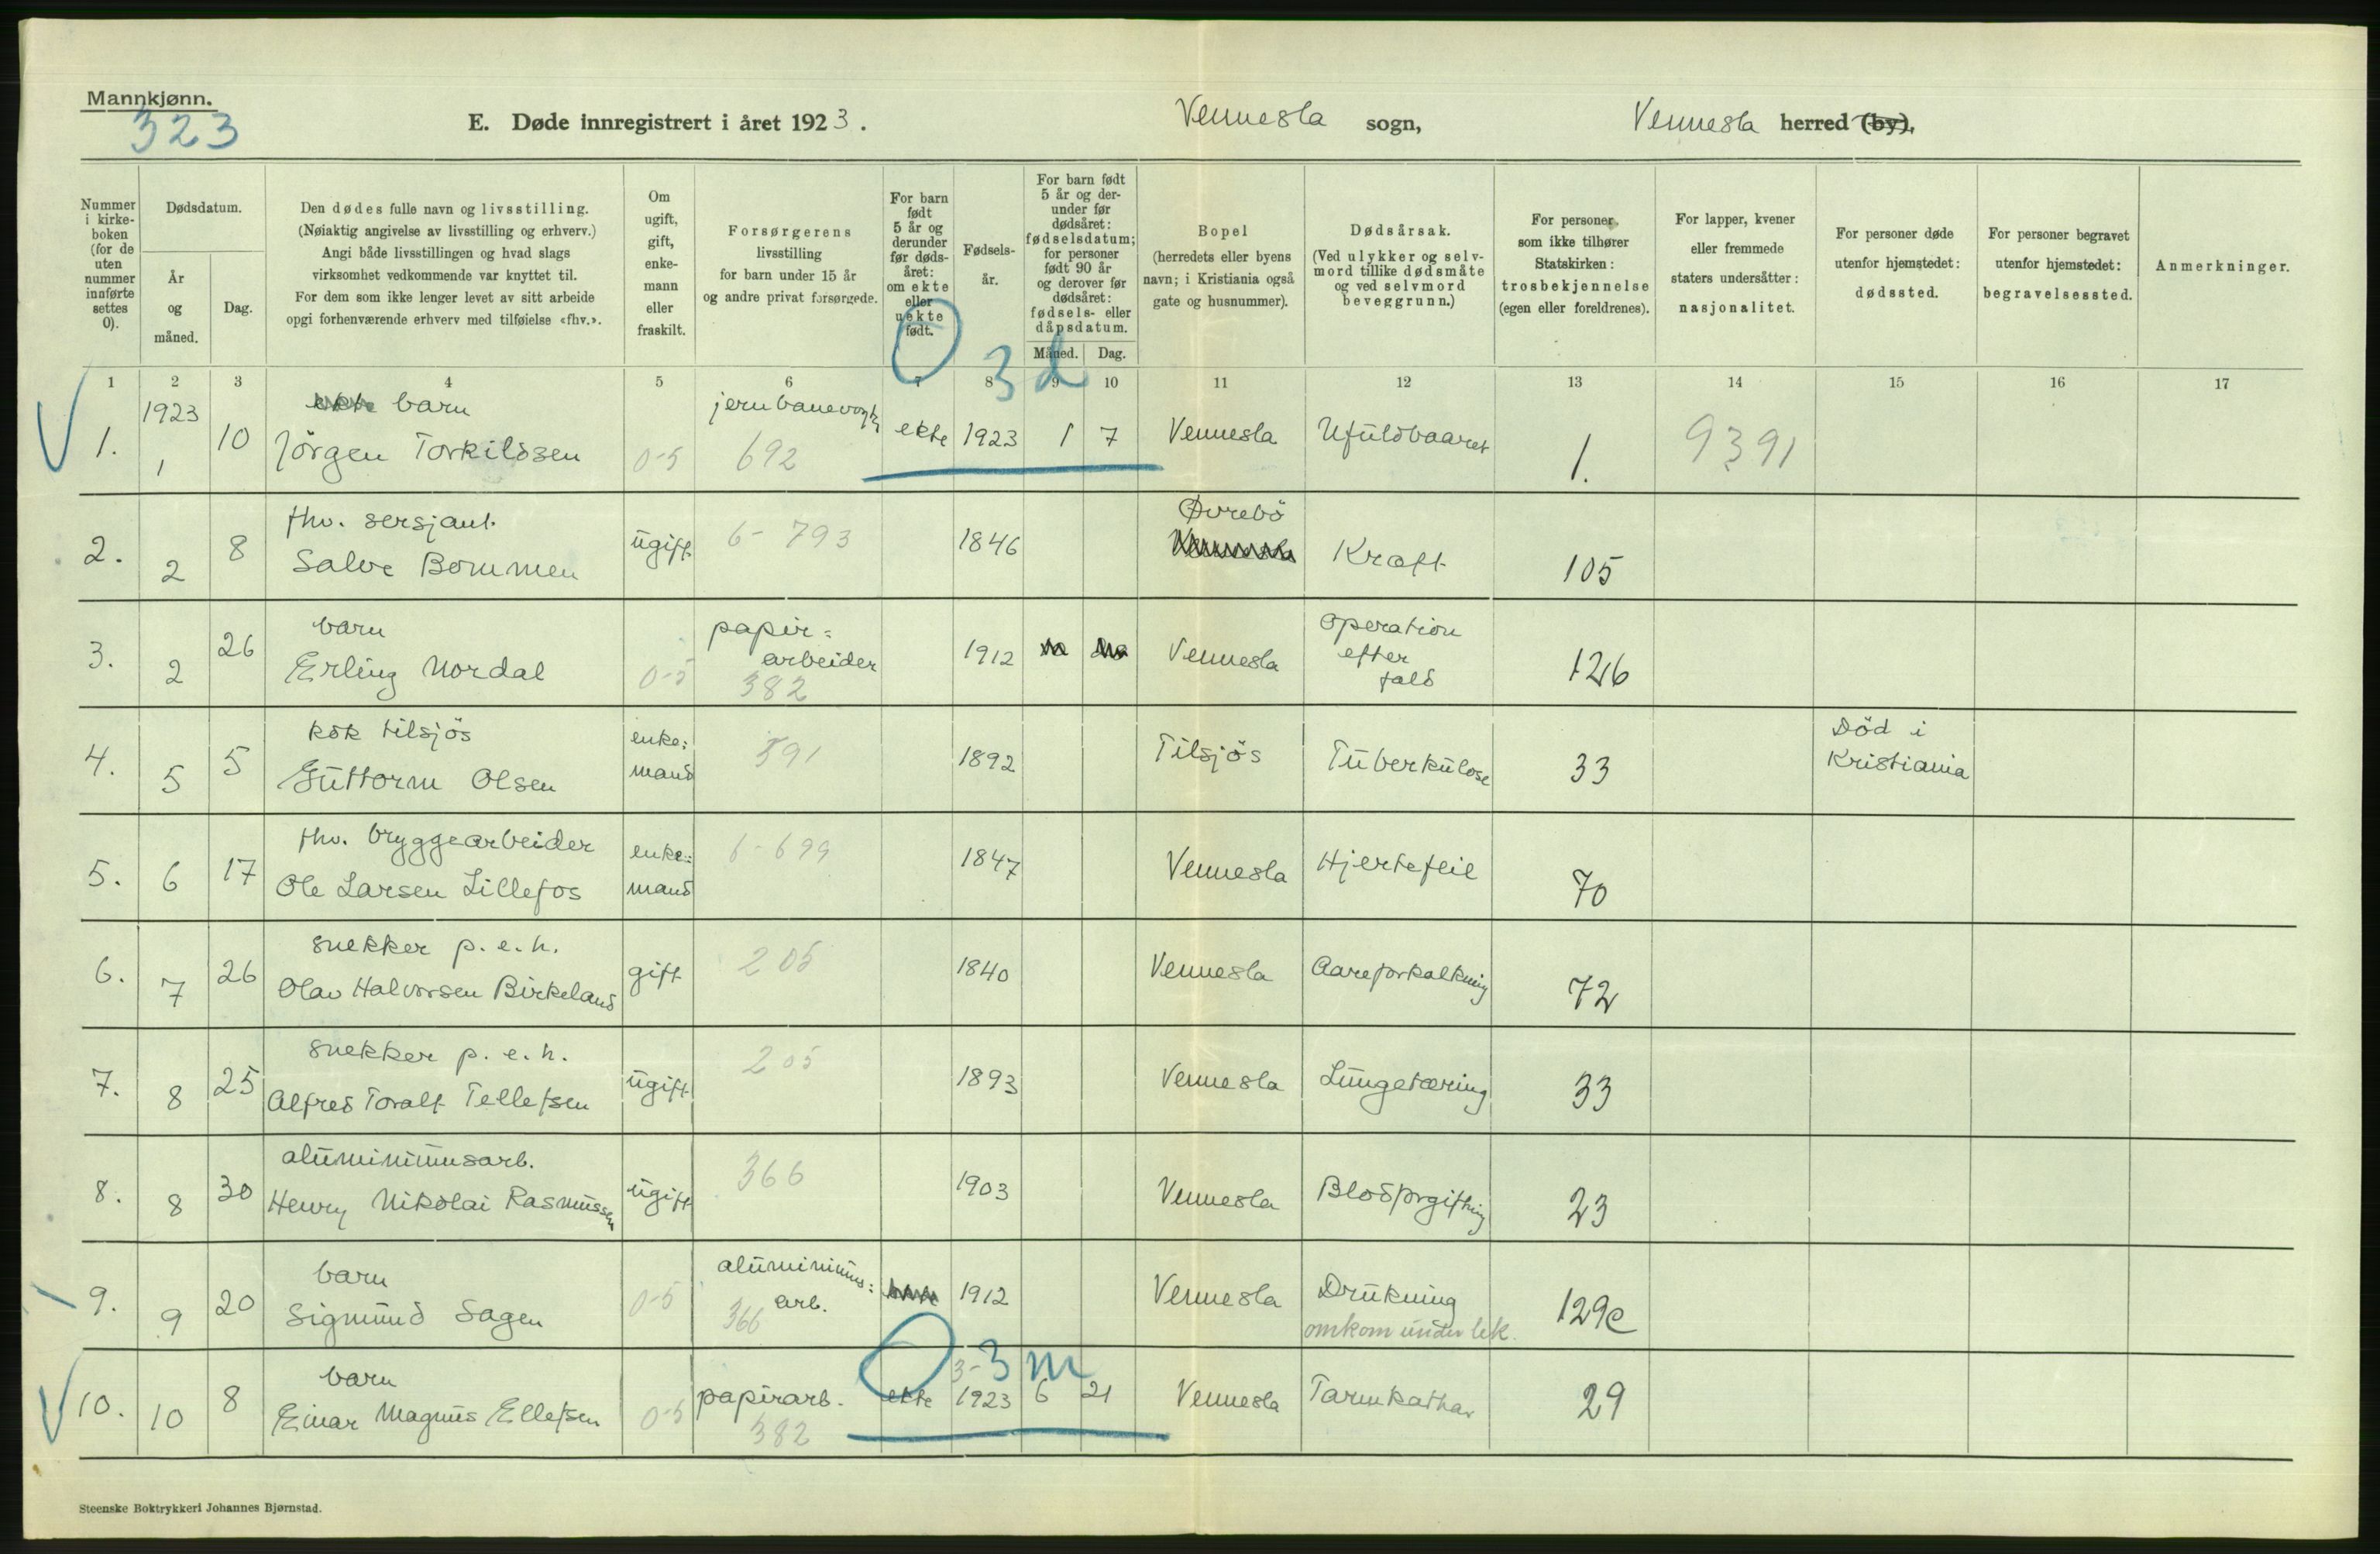 Mannkjønn.
323
E. Døde innregistrert i året 1923.
Vennesla sogn,
Vennesla herred (by),
Nummer i kirkeboken (for de uten nummer innførte settes 0).
Dødsdatum.
År og måned.
Dag.
Den dødes fulle navn og livsstilling.
(Nøiaktig angivelse av livsstilling og erhverv.)
Angi både livsstillingen og hvad slags
virksomhet vedkommende var knyttet til.
For dem som ikke lenger levet av sitt arbeide
opgi forhenværende erhverv med tilføielse «fhv.».
Om ugift, gift, enkemann eller fraskilt.
Forsørgerens
livsstilling
for barn under 15 år
og andre privat forsørgede.
For barn født 5 år og derunder før dødsåret: om ekte eller uekte født.
Fødselsår.
For barn født 5 år og derunder før dødsåret: fødselsdatum; for personer født 90 år og derover før dødsåret: fødsels- eller dåpsdatum.
Måned.
Dag.
Bopel
(herredets eller byens
navn; i Kristiania også
gate og husnummer).
Dødsårsak.
(Ved ulykker og selvmord tillike dødsmåte og ved selvmord beveggrunn.)
For personer som ikke tilhører Statskirken: trosbekjennelse (egen eller foreldrenes).
For lapper, kvener eller fremmede staters undersåtter: nasjonalitet.
For personer døde utenfor hjemstedet: dødssted.
For personer begravet utenfor hjemstedet: begravelsessted.
Anmerkninger.
3 d
1 2 3 4 5 6 7 8 9 10 11 12 13 14 15 16 17
1923 ekte barn jernbanevogt.
1. 1 10 Jörgen Torkildsen 0-5 692 ekte 1923 1 7 Vennesla Ufuldbaaret 1. 9391
fhv. sersjant. Øvrebö
2. 2 8 Salve Bommen ugift 6-793 1846 Vennesla Kræft 105
barn papir= operation
3. 2 26 Erling Nordal 0-5 arbeider 382 1912 Vennesla efter fald 126
kok tilsjös enke= Död i
4. 5 5 Guttorm Olsen mand 591 1892 Tilsjös Tuberkulose 33 Kristiania
fhv. bryggearbeider enke=
5. 6 17 Ole Larsen Lillefos mand 6-699 1847 Vennesla Hjertefeil 70
snekker p.e.h.
6. 7 26 Olav Halvorsen Birkeland gift 205 1840 Vennesla Aareforkalkning 72
snekker p.e.h.
7. 8 25 Alfred Toralf Tellefsen ugift 205 1893 Vennesla Lungetæring 33
aluminiumsarb.
8. 8 30 Henry Nikolai Rasmussen ugift 366 1903 Vennesla Blodforgiftning 23
barn aluminiums=
9. 9 20 Sigmund Sagen 0-5 arb. 366 1912 Vennesla Drukning 129c
omkom under lek.
3- 3 m
barn
10. 10 8 Einar Magnus Ellefsen 0-5 papirarb. 382 ekte 1923 6 21 Vennesla Tarmkathar 29
Steenske Boktrykkeri Johannes Bjørnstad.